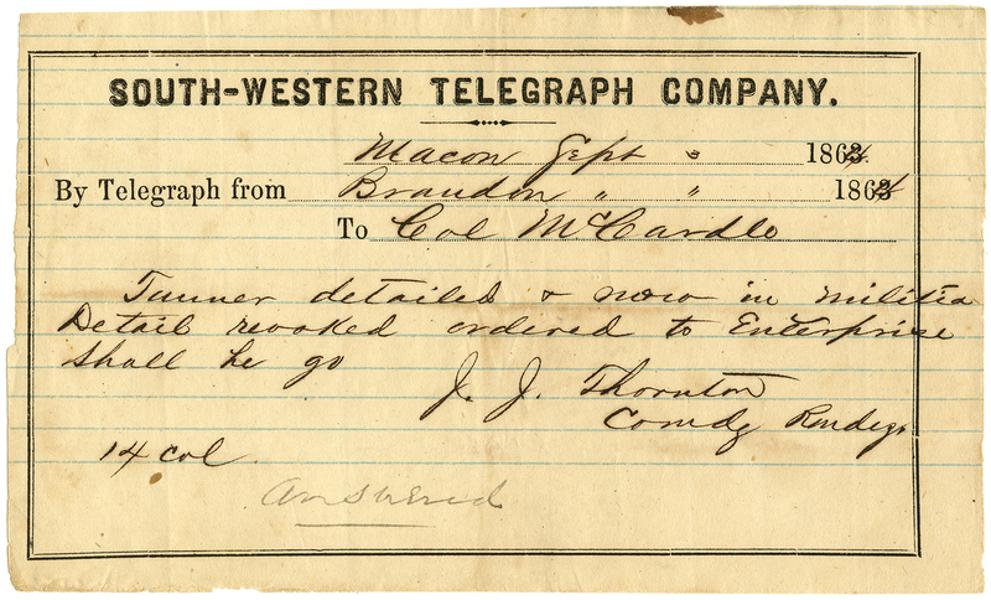 SOUTH-WESTERN TELEGRAPH COMPANY.
Macon Sept 3 1864.
By Telegraph from Brandon " " 1864
To Col McCardle
Tanner detailed & now in militia
Detail revoked ordered to Enterprise
Shall he go
J. J. Thornton
Comdg Rendezs
14 col
Answered